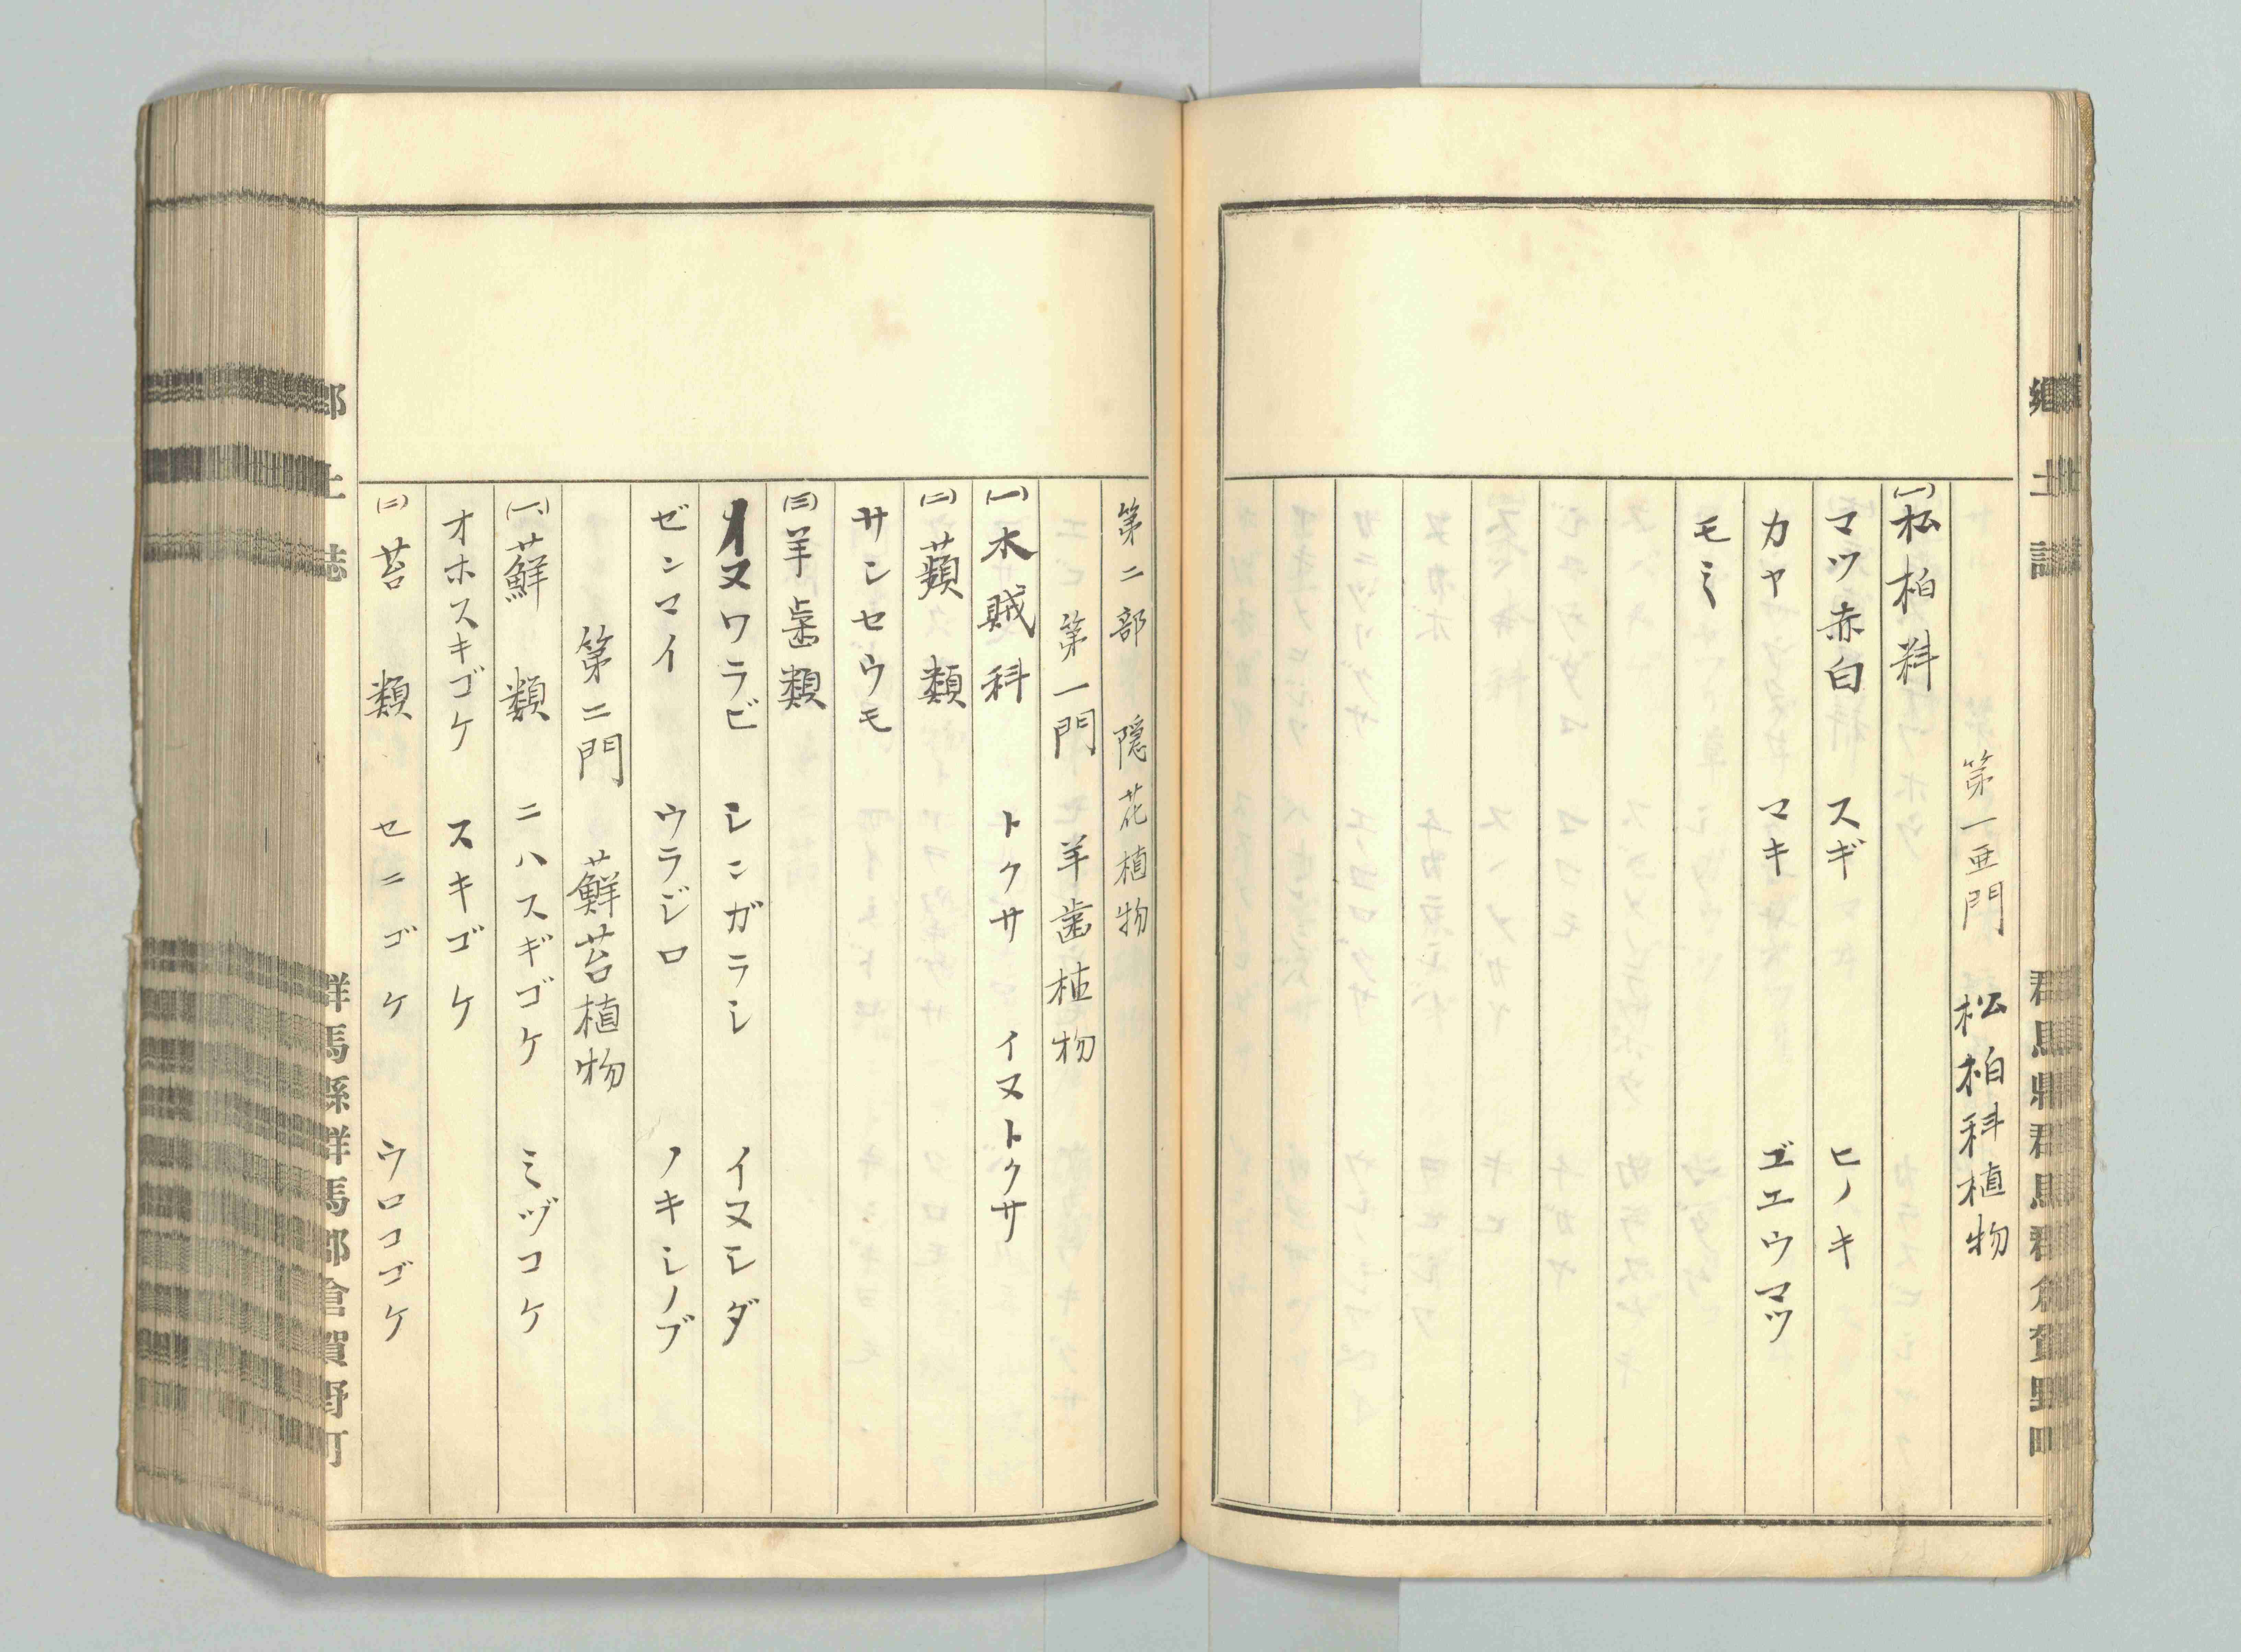 郷土誌
群馬縣群馬郡倉賀野町
第一亜門 松柏科植物
(一)松柏科
マツ赤白 スギ ヒノキ
カヤ マキ ゴエウマツ
モミ
第二部 隠花植物
第一門 羊歯植物
(一)木賊科 トクサ イヌトクサ
(二)蘋類
サンセウモ
(三)羊歯類
イヌワラビ シシガラシ イヌシダ
ゼンマイ ウラジロ ノキシノブ
第二門 蘚苔植物
(一)蘚類 ニハスギゴケ ミヅコケ
オホスキゴケ スキゴケ
(二)苔類 セニゴケ ウロコゴケ
郷土誌
群馬縣群馬郡倉賀野町